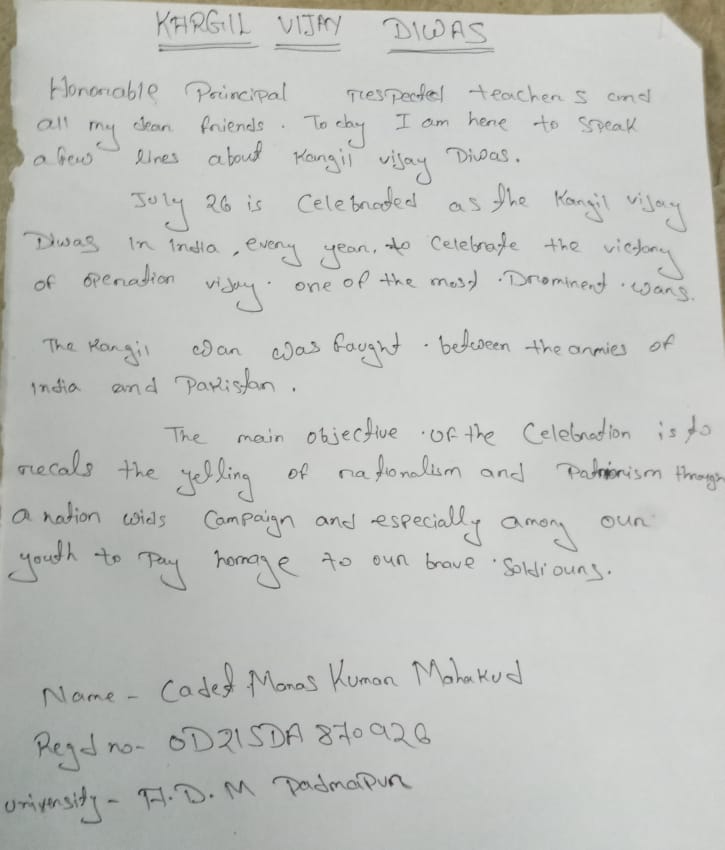 KARGIL VIJAY DIWAS
Honorable Principal respected teachers and
all my dear friends. To day I am here to speak
a few lines about Kargil vijay Diwas.
July 26 is Celebrated as the Kargil vijay
Diwas in India, every year, to Celebrate the victory
of operation vijay. one of the most Prominent wars.
The Kargil war was faught between the armies of
India and Pakistan.
The main objective of the Celebration is to
recals the yelling of nationalism and through
a nation wids Campaign and especially among our
youth to Pay homage to our brave Soldiours.
Name - Cadet Manas Kumar Mahakud
Regd no- OD21SDA870926
University - A.D.M Padmapur